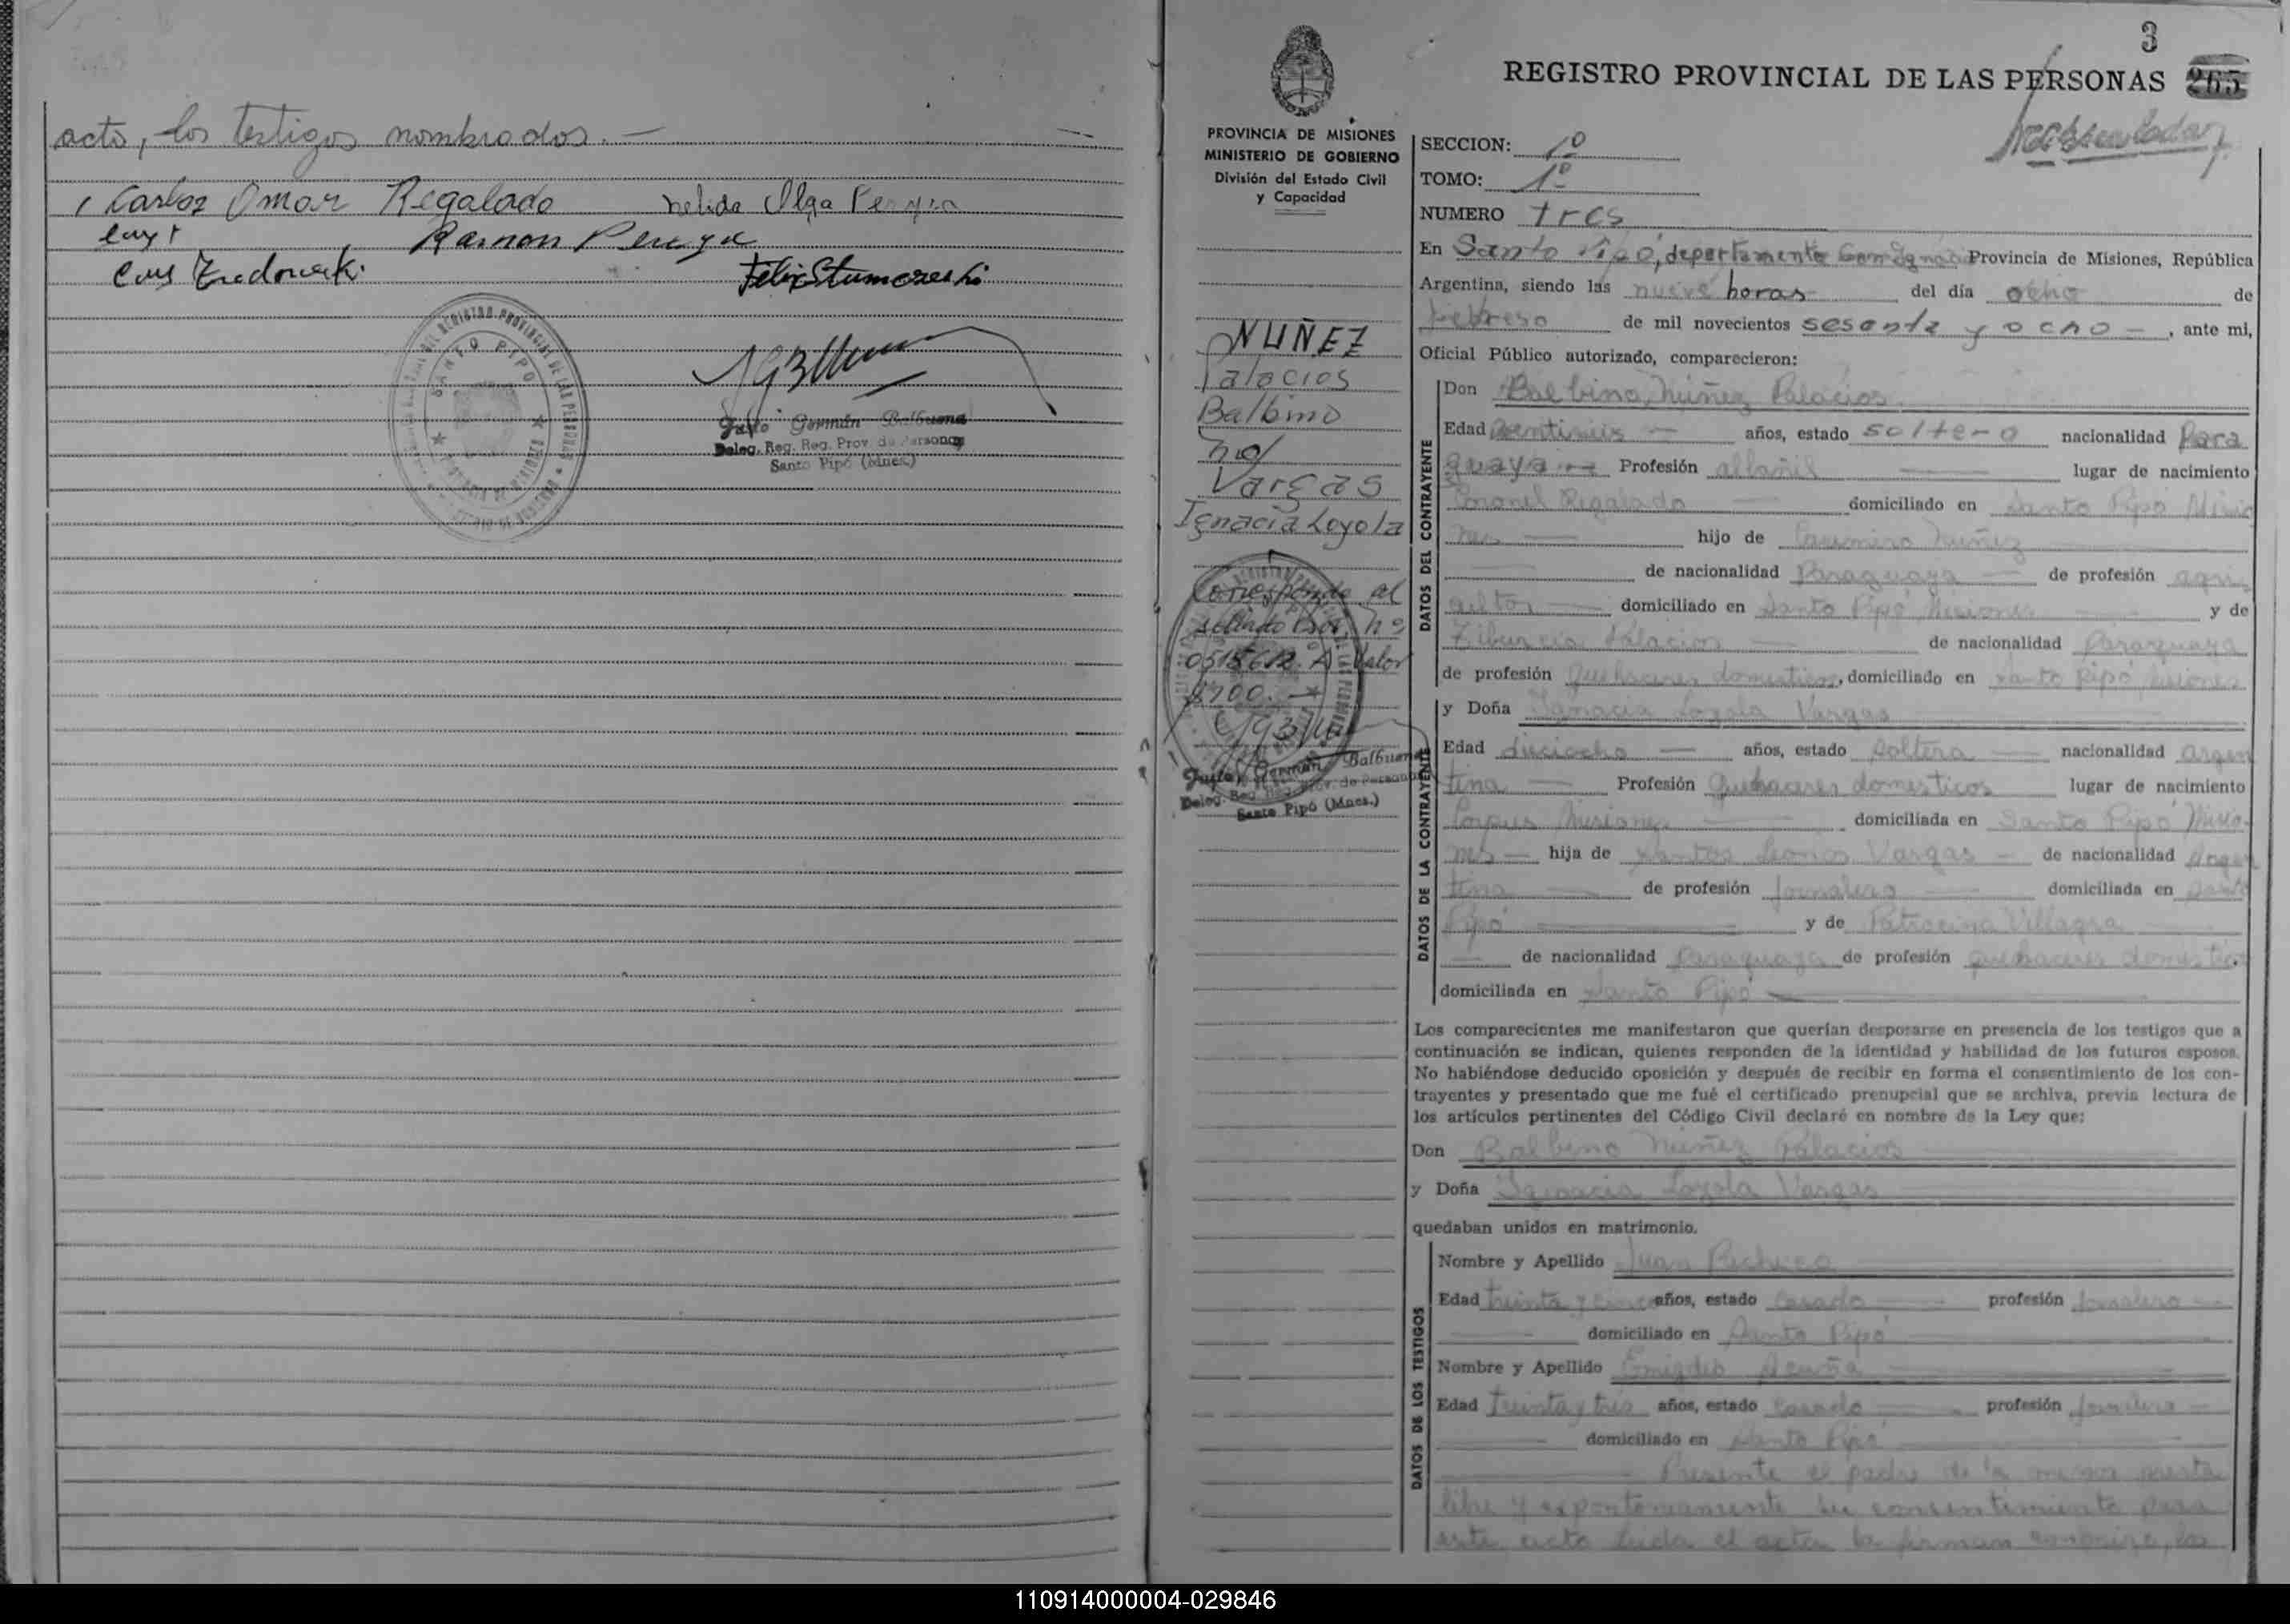 acto, los testigos nombrados. —
Carlos Omar Regalado Nelida Olga Pereyra
Ramon Pereyra
Felix
REGISTRO PROVINCIAL DE LAS PERSONAS
SANTO PIPO
Justo Germán Balbuena
Deleg. Reg. Reg. Prov. de Personas
Santo Pipó (Mnes.)
3
REGISTRO PROVINCIAL DE LAS PERSONAS 265
PROVINCIA DE MISIONES
MINISTERIO DE GOBIERNO
División del Estado Civil
y Capacidad
NUÑEZ
Palacios
Balbino
Vargas
Ignacia Loyola
Corresponde al
sellado
Valor
$700. —
Justo Germán Balbuena
Deleg. Reg. Reg. Prov. de Personas
Santo Pipó (Mnes.)
SECCION: 1º
TOMO: 1º
NUMERO tres
En Santo Pipó, departamento Provincia de Misiones, República
Argentina, siendo las nueve horas del día ocho de
febrero de mil novecientos sesenta y ocho —, ante mi,
Oficial Público autorizado, comparecieron:
DATOS DEL CONTRAYENTE
Don Balbino Núñez Palacios
Edad veintiseis — años, estado soltero nacionalidad Para
guaya — Profesión albañil — lugar de nacimiento
Coronel Regalado — domiciliado en Santo Pipó Misio
nes — hijo de Casimiro Núñez
— de nacionalidad Paraguaya — de profesión agri
cultor — domiciliado en Santo Pipó Misiones y de
Tiburcia Palacios — de nacionalidad Paraguaya
de profesión Quehaceres domesticos, domiciliado en Santo Pipó Misiones
DATOS DE LA CONTRAYENTE
y Doña Ignacia Loyola Vargas
Edad dieciocho — años, estado soltera — nacionalidad argen
tina — Profesión Quehaceres domesticos lugar de nacimiento
Corpus Misiones — domiciliada en Santo Pipó Misio-
nes — hija de Santos Vargas — de nacionalidad Argen
tina — de profesión Jornalero — domiciliada en Santo
Pipó — y de Patrocina Villagra
— de nacionalidad Paraguaya de profesión quehaceres domesticos
domiciliada en Santo Pipó —
Los comparecientes me manifestaron que querían desposarse en presencia de los testigos que a
continuación se indican, quienes responden de la identidad y habilidad de los futuros esposos.
No habiéndose deducido oposición y después de recibir en forma el consentimiento de los con-
trayentes y presentado que me fué el certificado prenupcial que se archiva, previa lectura de
los artículos pertinentes del Código Civil declaré en nombre de la Ley que:
Don Balbino Núñez Palacios
y Doña Ignacia Loyola Vargas
quedaban unidos en matrimonio.
DATOS DE LOS TESTIGOS
Nombre y Apellido Juan Pacheco
Edad treinta y cinco años, estado Casado — profesión Jornalero —
— domiciliado en Santo Pipó
Nombre y Apellido Emigdio Acuña
Edad treinta y tres años, estado Casado — profesión Jornalero —
— domiciliado en Santo Pipó
— Presente el padre de la menor presta
libre y espontaneamente su consentimiento para
este acto leida el acta la firman conmigo, los
110914000004-029846